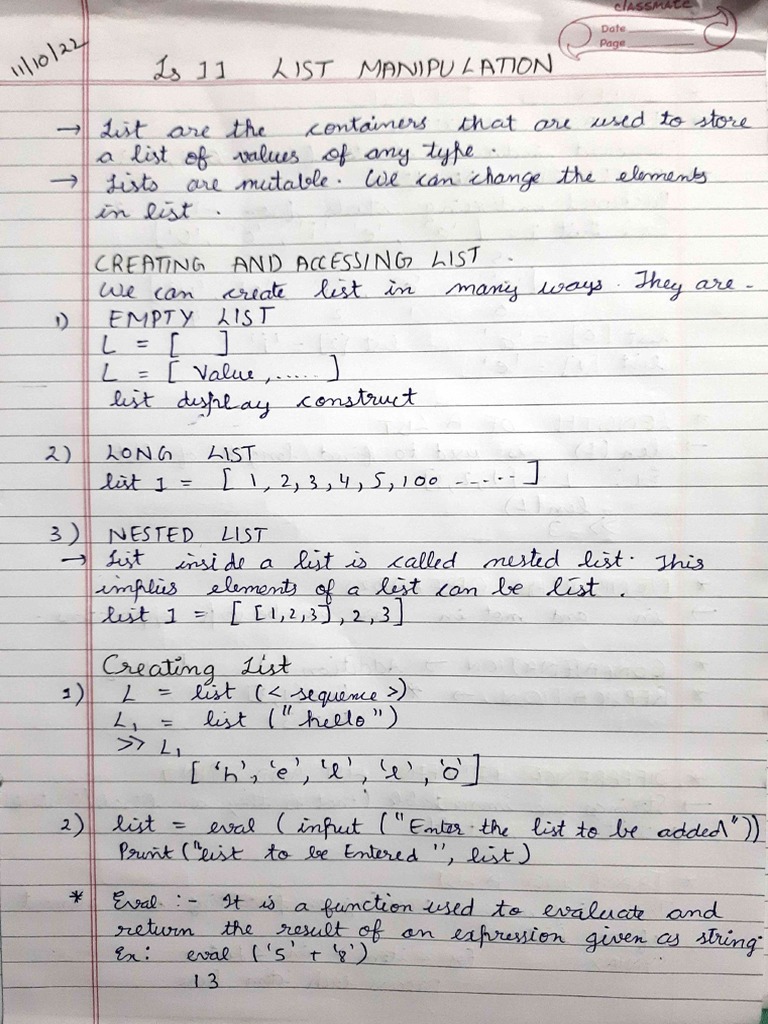 classmate
Date
Page
11/10/22
Ls 11 LIST MANIPULATION
→ List are the containers that are used to store
a list of values of any type.
→ Lists are mutable. We can change the elements
in list.
CREATING AND ACCESSING LIST.
We can create list in many ways. They are -
1) EMPTY LIST
L = [ ]
L = [ Value, ..... ]
list display construct
2) LONG LIST
list 1 = [ 1, 2, 3, 4, 5, 100 ------ ]
3) NESTED LIST
→ List inside a list is called nested list. This
implies elements of a list can be list.
list 1 = [ [1,2,3], 2, 3]
Creating List
1) L = list (< sequence >)
L1 = list ("hello")
>> L1
['h', 'e', 'l', 'l', 'o']
2) list = eval ( input ("Enter the list to be added"))
Print ("list to be Entered", list)
* Eval :- It is a function used to evaluate and
return the result of an expression given as string.
Ex: eval ('5' + '8')
13